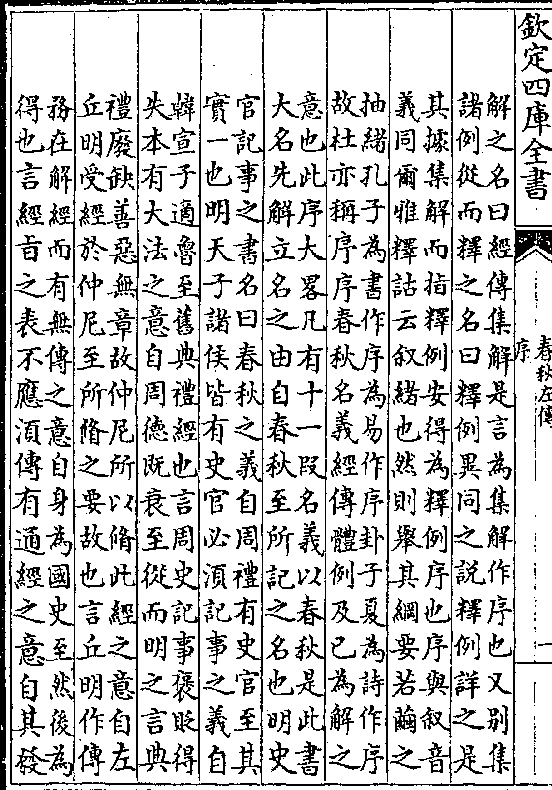 欽定四庫全書
春秋左傳
序
一
解之名曰經傳集解是言為集解作序也又別集
諸例從而釋之名曰釋例異同之說釋例詳之是
其據集解而指釋例安得為釋例序也序與叙音
義同爾雅釋詁云叙緒也然則舉其綱要若繭之
抽緒孔子為書作序為易作序卦子夏為詩作序
故杜亦稱序序春秋名義經傳體例及已為解之
意也此序大畧凡有十一段名義以春秋是此書
大名先解立名之由自春秋至所記之名也明史
官記事之書名曰春秋之義自周禮有史官至其
實一也明天子諸侯皆有史官必須記事之義自
韓宣子適魯至舊典禮經也言周史記事褒貶得
失本有大法之意自周德既衰至從而明之言典
禮廢缺善惡無章故仲尼所以脩此經之意自左
丘明受經於仲尼至所脩之要故也言丘明作傳
務在解經而有無傳之意自身為國史至然後為
得也言經旨之表不應須傳有通經之意自其發